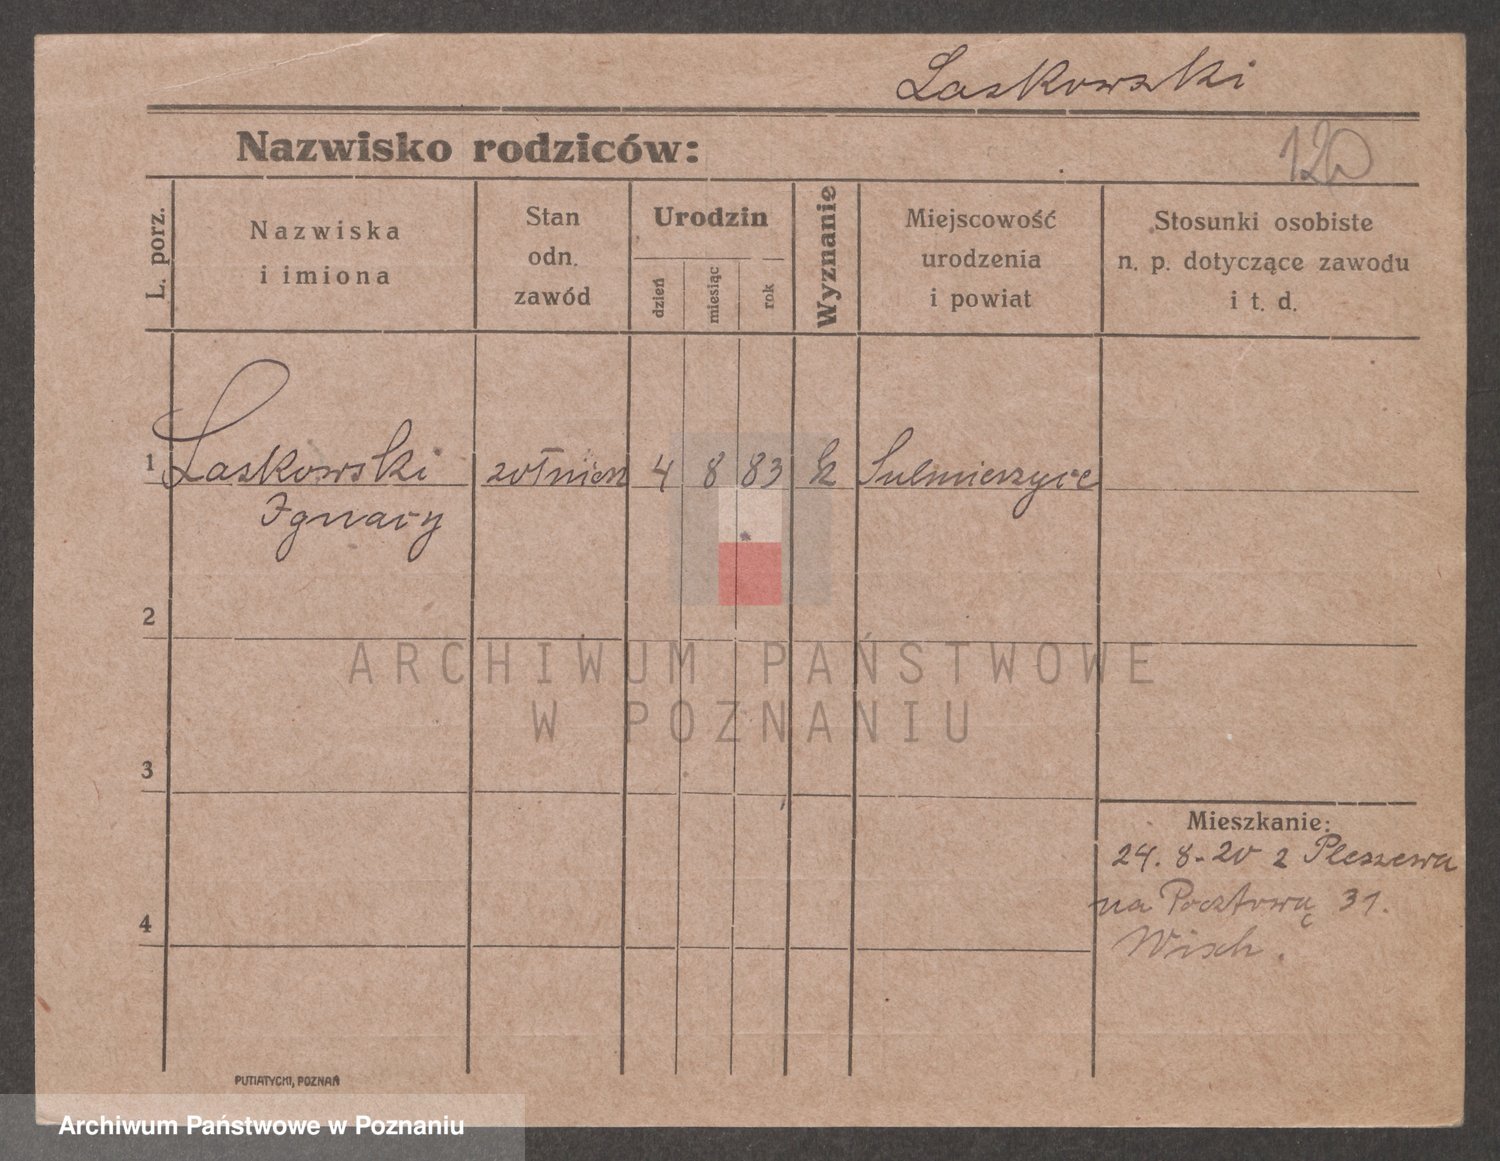 Laskowski
Nazwisko rodziców:
120
L. porz.
Nazwiska
i imiona
Stan
odn.
zawód
Urodzin
dzień
miesiąc
rok
Wyznanie
Miejscowość
urodzenia
i powiat
Stosunki osobiste
n. p. dotyczące zawodu
i t. d.
1 Laskowski żołnierz 4 8 83 Sulmierzyce
Ignacy
2
3
4
Mieszkanie:
24. 8-20 z Pleszewa
na Pocztową 31.
PUTIATYCKI, POZNAŃ
ARCHIWUM PAŃSTWOWE
W POZNANIU
Archiwum Państwowe w Poznaniu